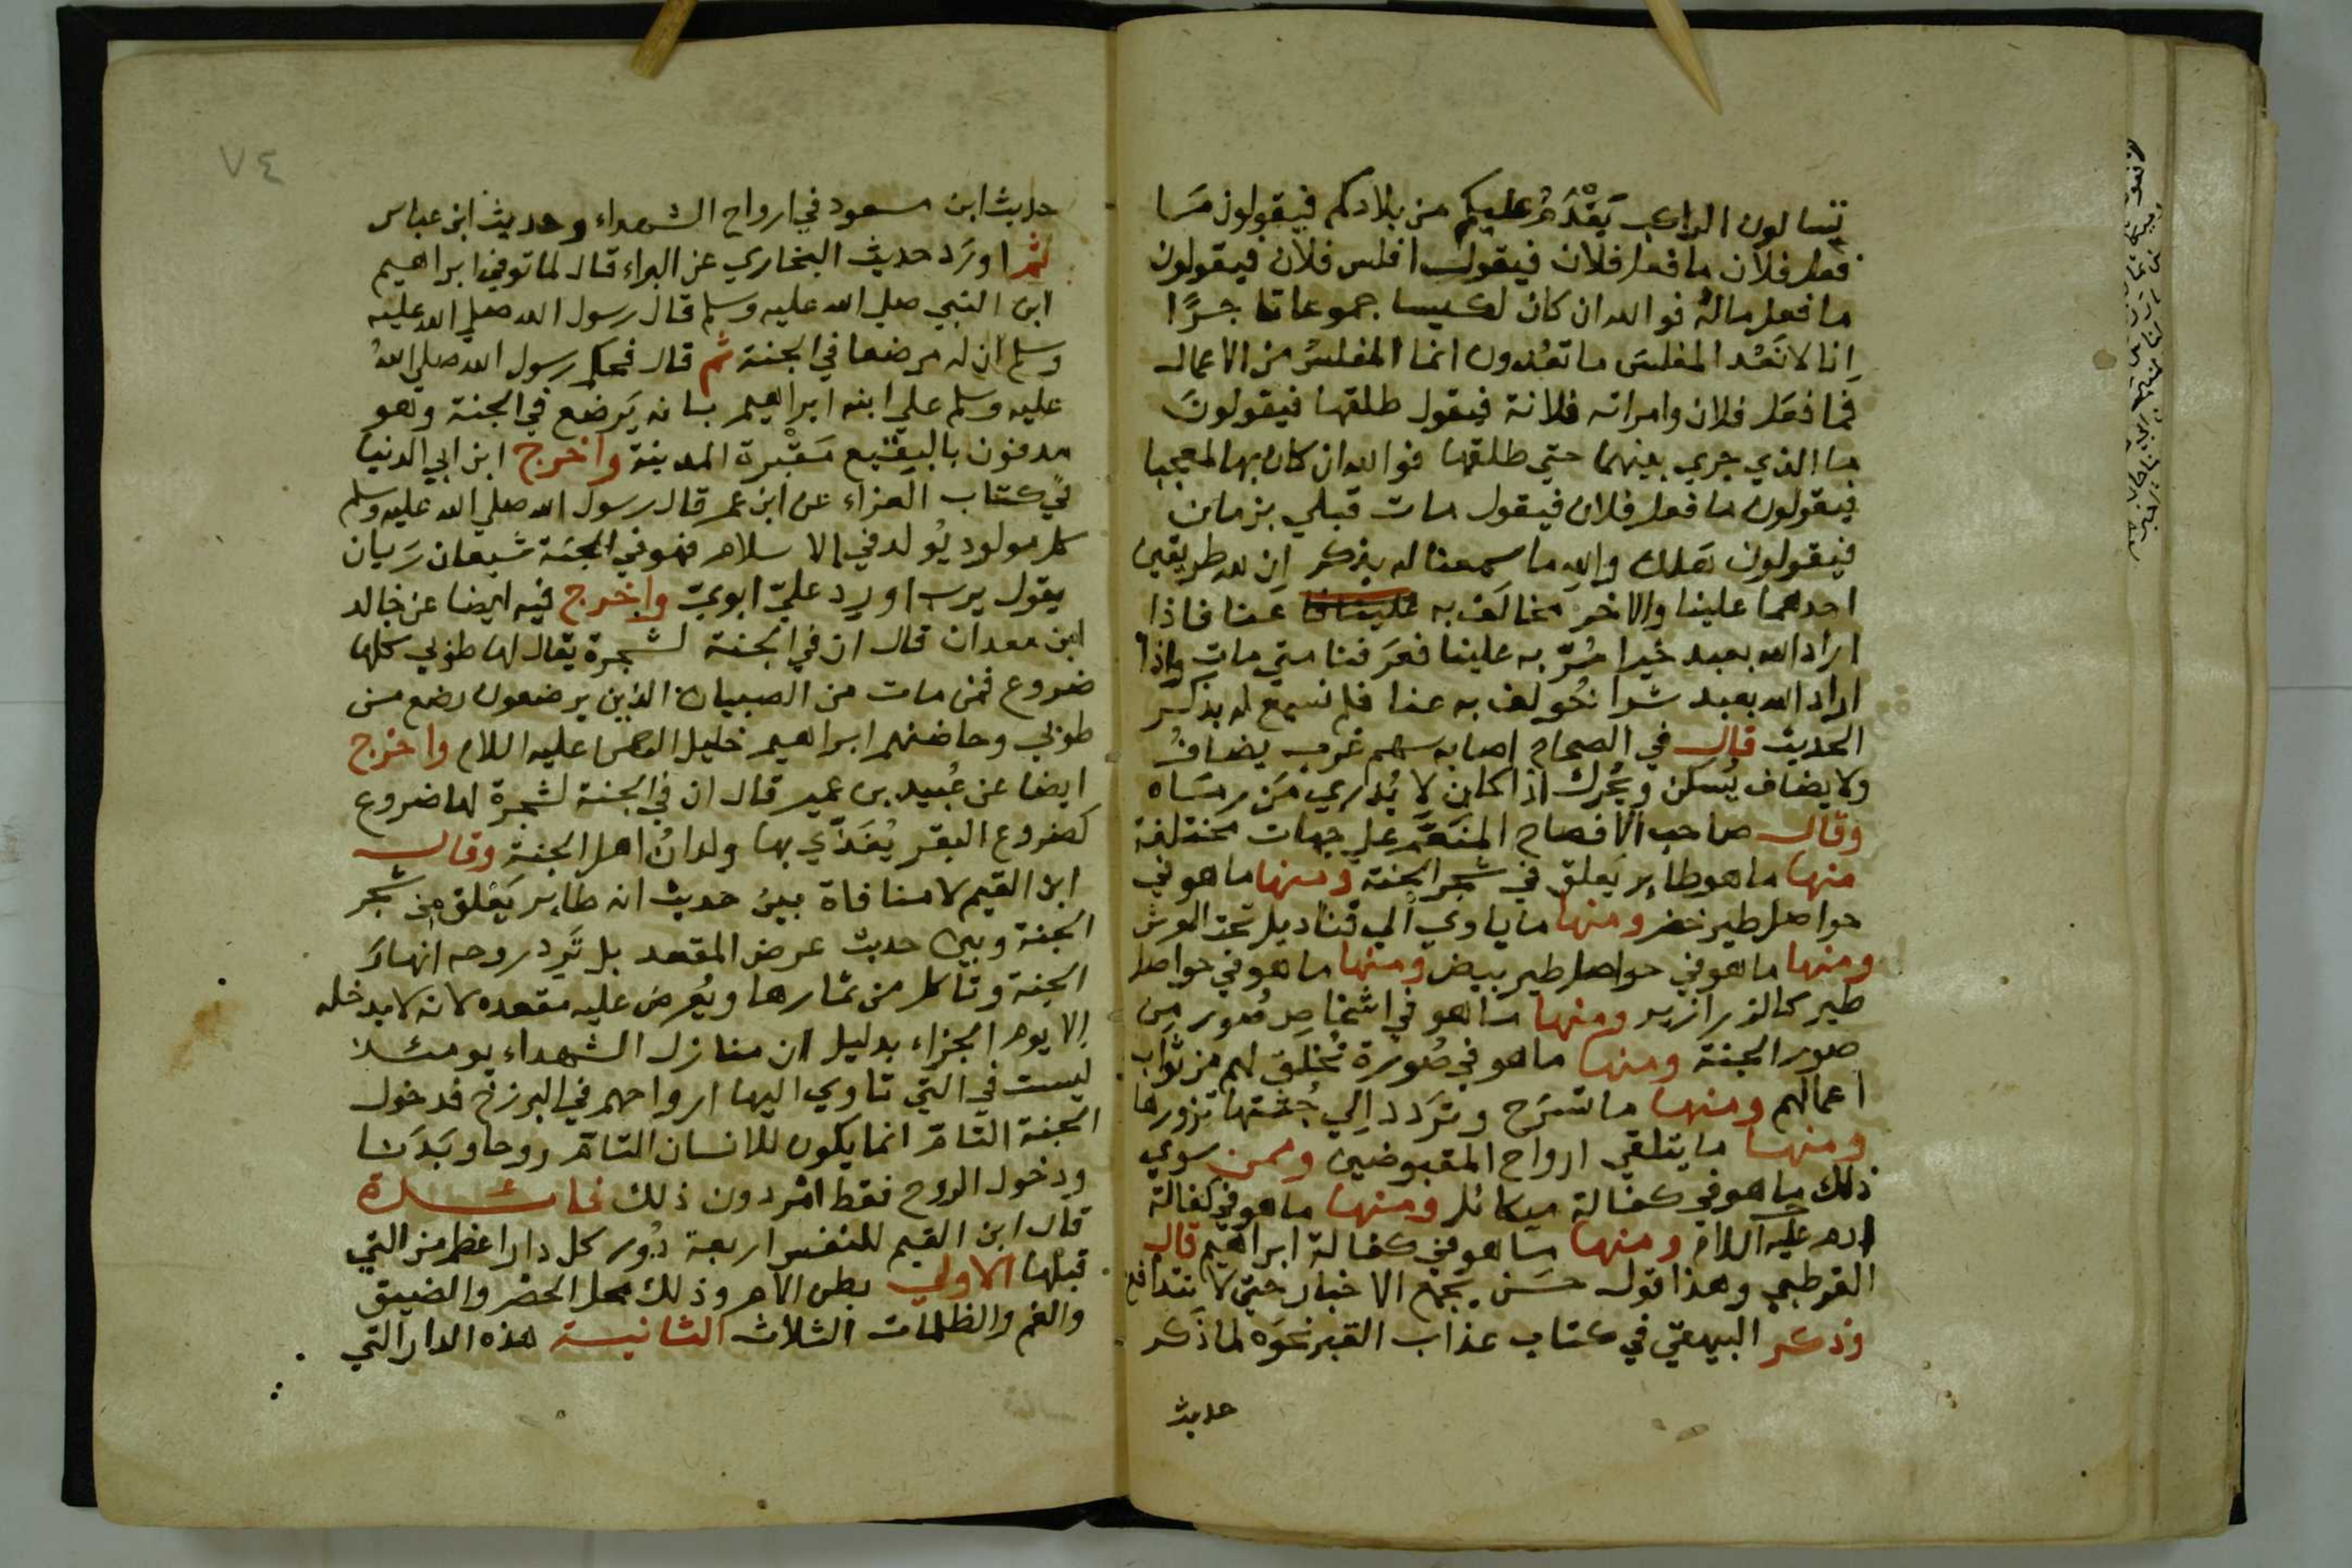 تتسالون الراكب يَقْدَمُ عليكم من بلادكم فيقولون مَا
فعل فلان ما فعل فلان فيقول افلس فلان فيقولون
ما فعل مالهُ فوالله ان كان لكيسا جموعا تاجرًا
انا لا نَعُد المفلسَ ما تعُدون انما المفلسُ من الاعمال
فما فعَل فلان وامراته فلانة فيقول طلقها فيقولون
ما الذي جري بينهما حتي طلقها فوالله ان كان بها لمعجبا
فيقولون ما فعل فلان فيقول مات قبلي بزمان
فيقولون هَلك والله ما سمعنا له بذكر ان لله طريقين
احدهما علينا والاخر مخالَف به عنا فاذا
اراد الله بعبد خيرا مُرّ به علينا فعرَفنا متي مات واذا
اراد الله بعبد شرا نحُولف به عنا فلم نسمع له بذكر
الحديث قال في الصحاح اصابه سهم غرب يضافُ
ولا يضاف يُسكن ويُحرك اذا كان لا يُدري مَن رمَاه
وقال صاحب الافصاح المنَعَّم علي جهات مختلفة
منها ما هو طاير يَعلق في شجر الجنة ومنها ما هو في
حواصل طير خضر ومنها ما ياوي الي قناديل تحت العرش
ومنها ما هو في حواصل طير بيض ومنها ما هو في حواصل
طير كالزرازير ومنها ما هو في اشخاص صُور من
صور الجنة ومنها ما هو في صُورة تُخلق لهم من ثواب
اعمالهم ومنها ما تسَرح وترَدد الي جُثتها تزورها
ومنها ما يتلقي ارواح المقبوضين وممن سوي
ذلك ما هو في كفالة ميكائل ومنها ما هو في كفالة
ادم عليه السلام ومنها ما هو في كفالة ابراهيم قال
القرطبي وهذا قول حسَن يجمع الاخبار حتي لا تتدافع
وذكر البيهقي في كتاب عذاب القبر نحوَه لما ذَكر
حديث
٧٤
حديث ابن مسعود في ارواح الشهداء وحديث ابن عباس
ثم اورَد حديث البخاري عن البراء قال لما توفي ابراهيم
ابن النبي صلي الله عليه وسلم قال رسول الله صلي الله عليه
وسلم ان له مرضعا في الجنة ثم قال فحكم رسول الله صلي اللهُ
عليه وسلم علي ابنه ابراهيم بانه يَرضع في الجنة وهو
مدفون بالبقيع مَقْبرة المدينة واخرج ابن ابي الدنيا
في كتاب العزاء عن ابن عمر قال رسول الله صلي الله عليه وسلم
كل مولود يُولد في الاسلام فهو في الجنة شبعان رَيان
يقول يرب اورد عليّ ابويّ واخرج فيه ايضا عن خالد
ابن معدان قال ان في الجنة لشجرة يقال لها طوبي كلها
ضروع فمن مات من الصبيان الذين يرضعون رضع من
طوبي وحاضنهم ابراهيم خليل الرحمن عليه السلام واخرج
ايضا عن عُبيد بن عمير قال ان في الجنة لشجرة لها ضروع
كضروع البقر يُغَذّي بها ولدانُ اهل الجنة وقال
ابن القيم لا منافاة بين حديث انه طاير يَعْلق من شجر
الجنة وبين حديث عرض المقعد بل تَرِد روحه انهارَ
الجنة وتاكل من ثمارها ويُعرض عليه مقعده لانه لا يدخله
الا يوم الجزاء بدليل ان منازل الشهداء يومئذ
ليست في التي تاوي اليها ارواحهم في البرزخ فدخول
الجنة التامّ انما يكون للانسان التامّ روحا وبَدَنا
ودخول الروح فقط امْر دون ذلك فائدة
قال ابن القيم للنفس اربعة دُور كل دار اعظم من التي
قبلها الاولي بطن الام وذلك محل الحصر والضيق
والغم والظلمات الثلاث الثانية هذه الدار التي